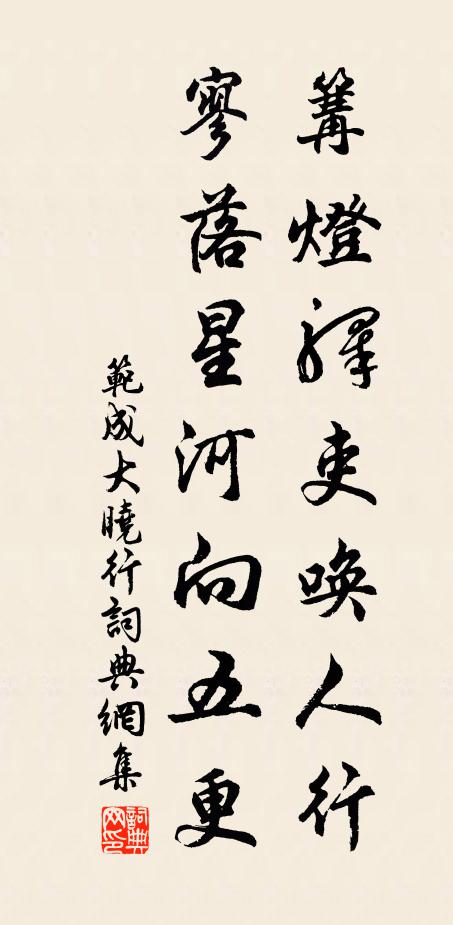 篝燈驛吏喚人行
寥落星河向五更
範成大曉行詞典網集
詞典网印